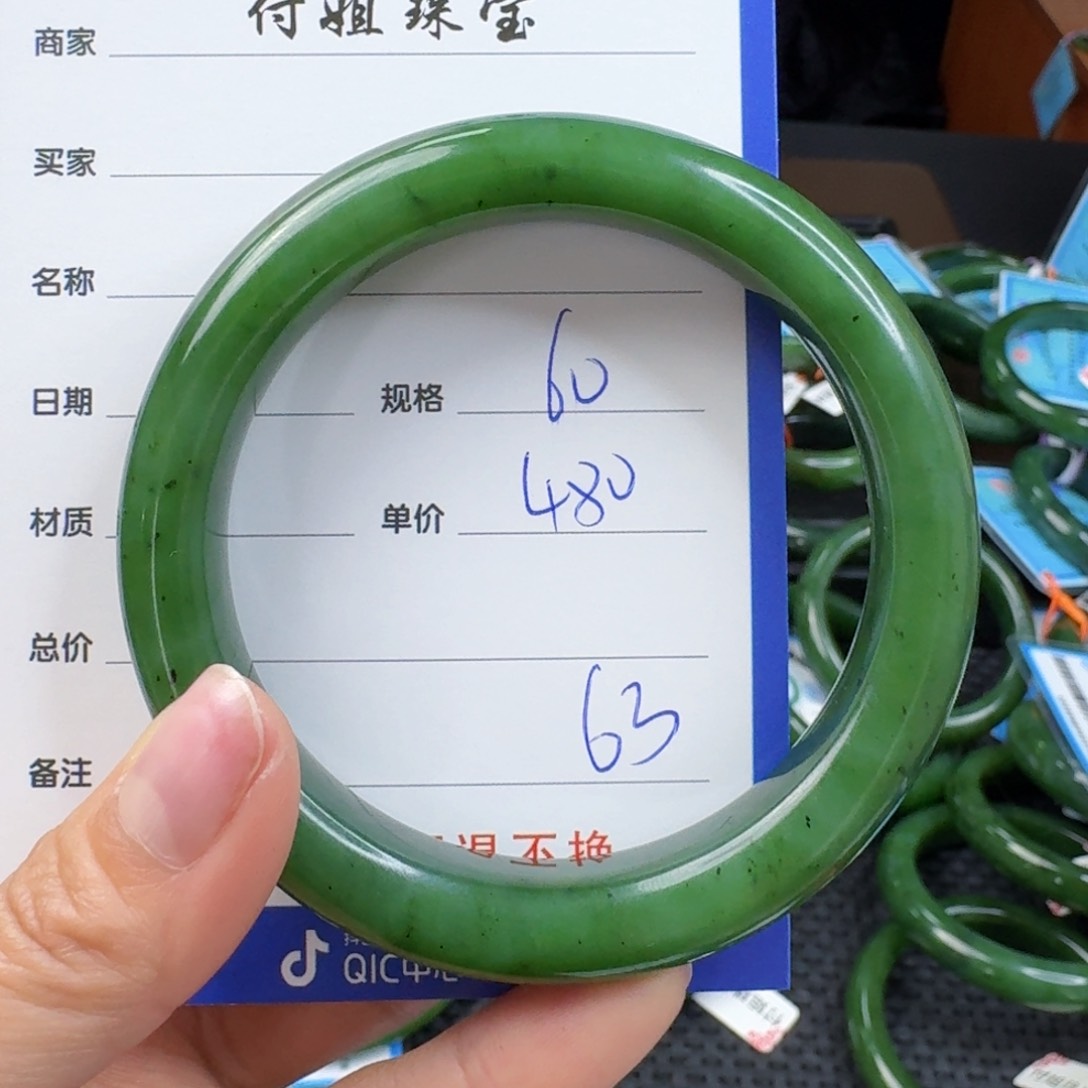 商家 付姐珠宝
买家
名称
日期 规格 60
材质 单价 480
总价
备注 63
退不换
QIC中心